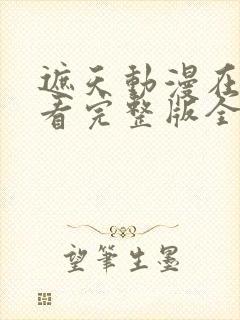 遮天動漫在
看完整版全
望筆生墨